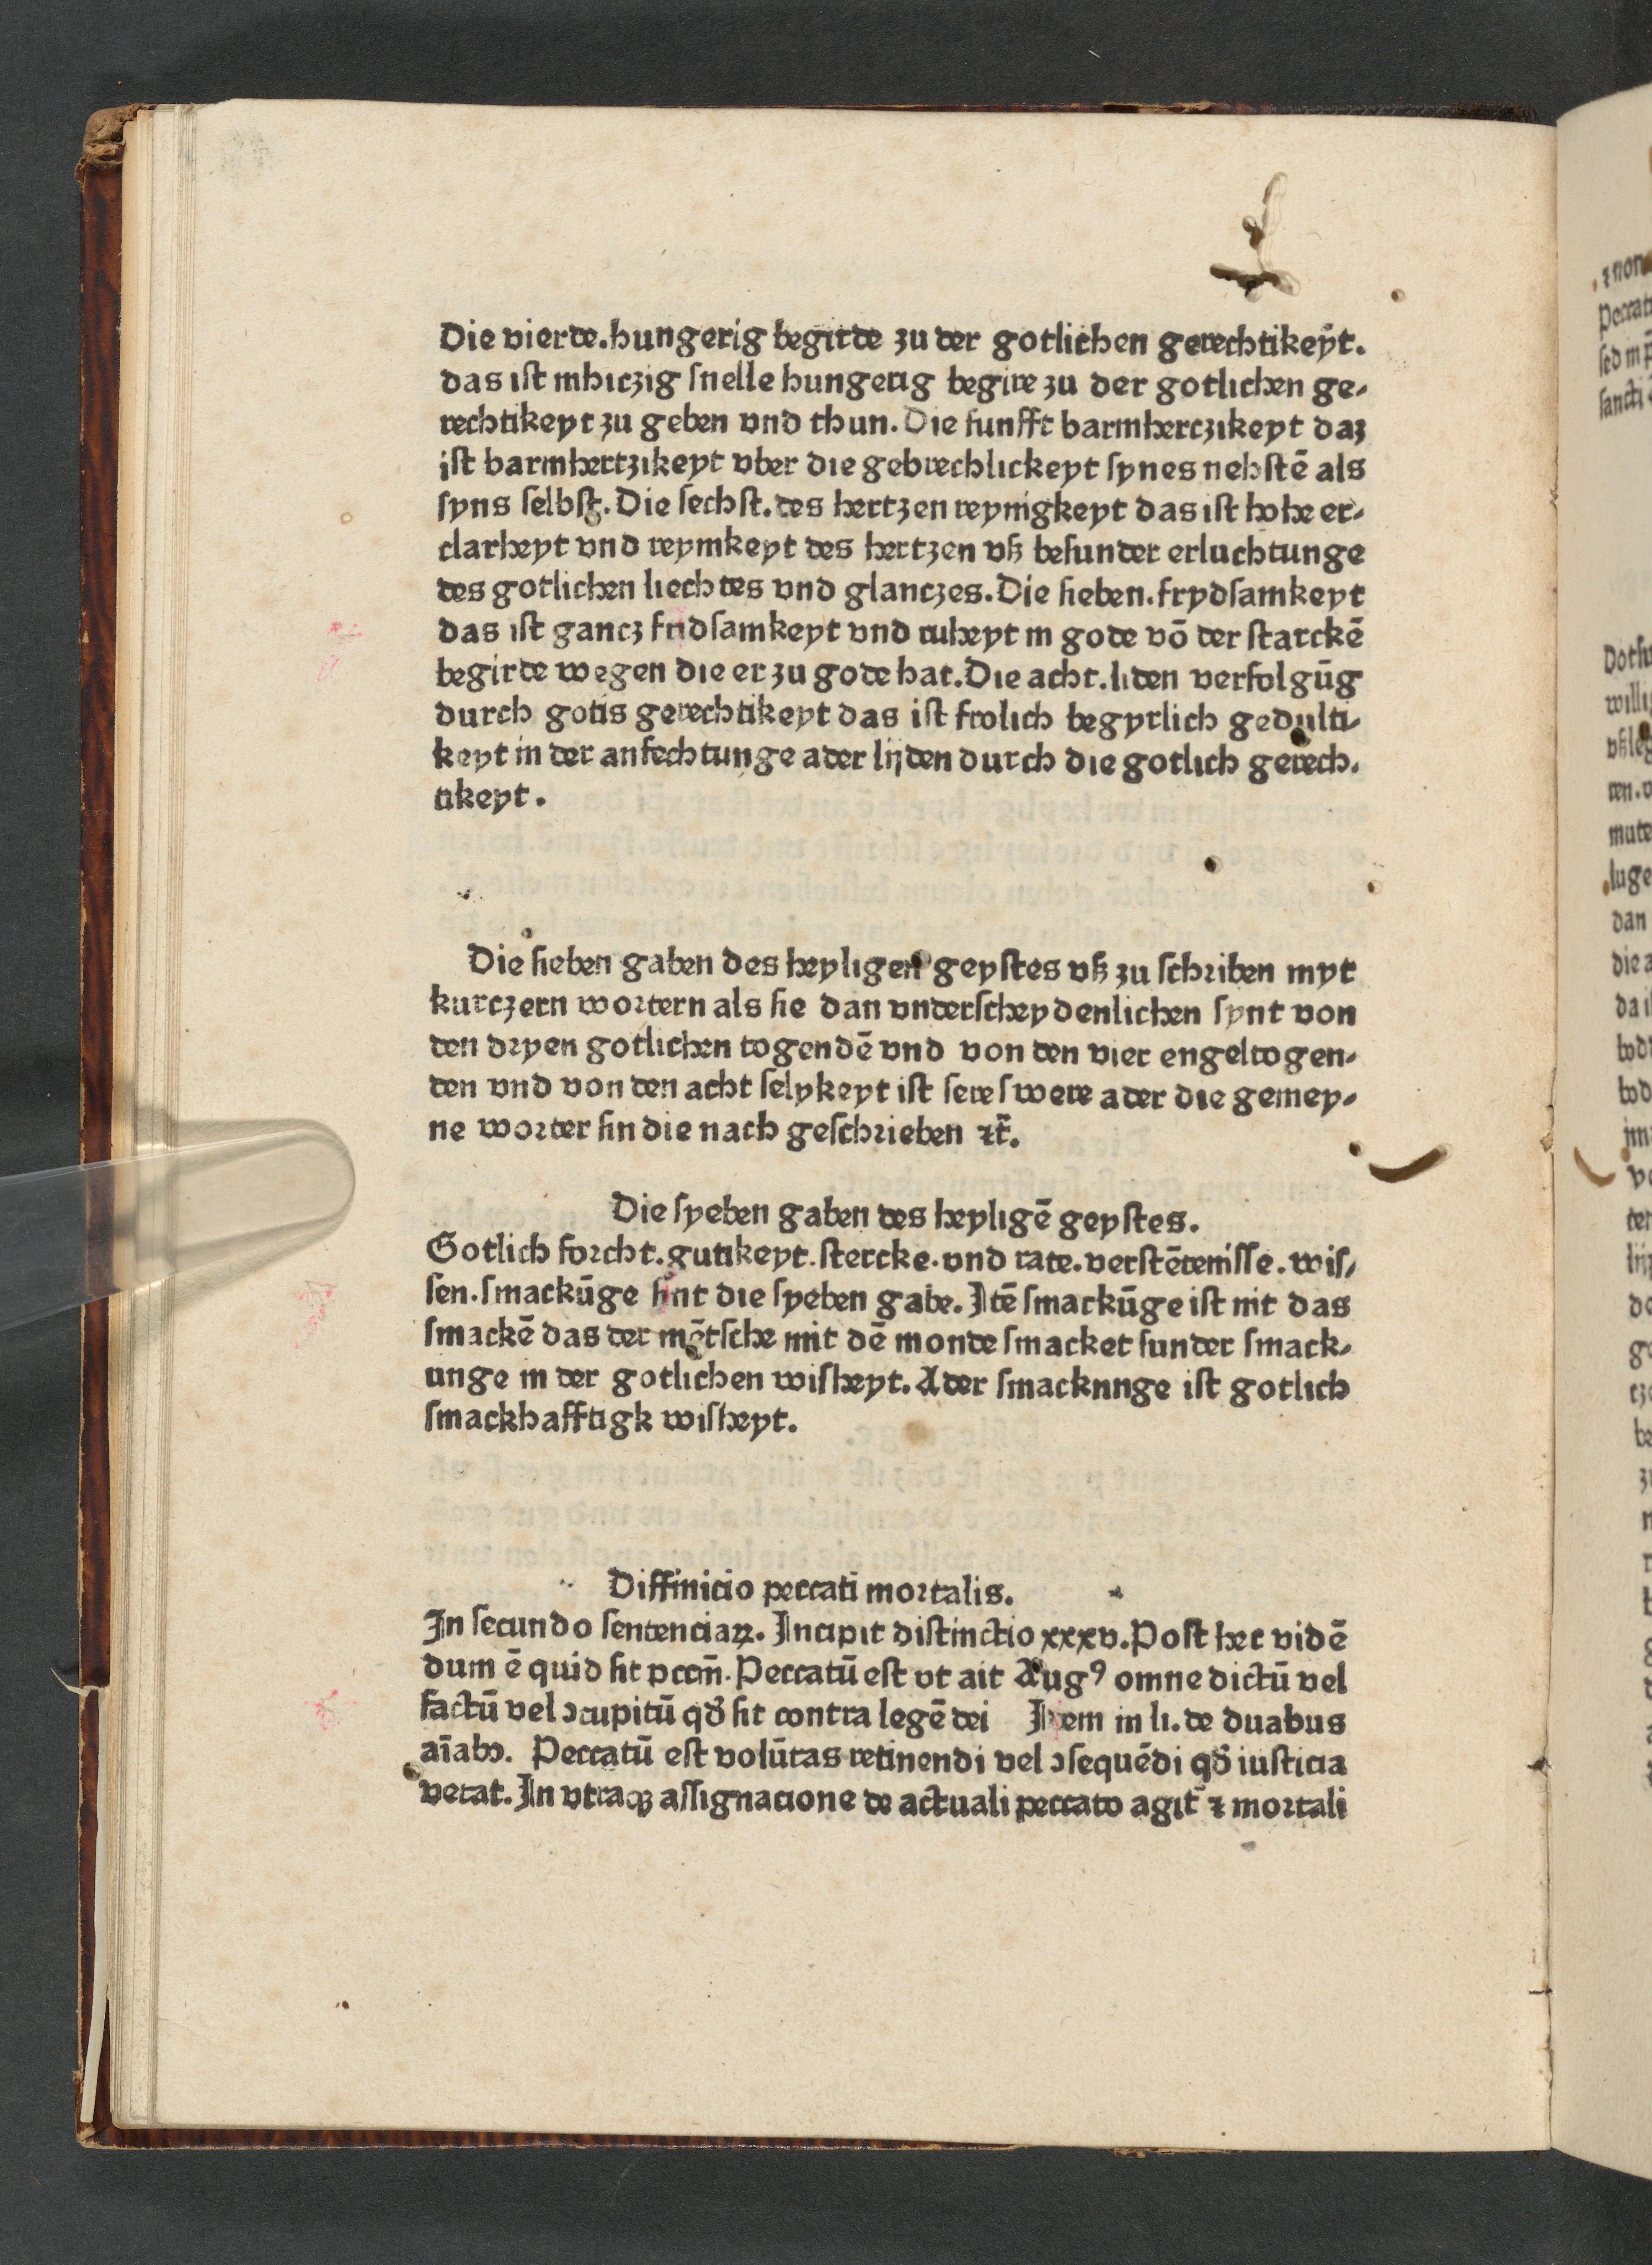 Die vierde.hungerig begirde zu der gotlichen gerechtikeyt.
das ist inhiczig snelle hungerig begire zu der gotlichen ge⸗
rechtikeyt zu geben vnd thun. Die funfft barmherczikeyt daz
ist barmhertzikeyt vber die gebrechlickeyt synes nehstē als
syns selbst. Die sechst.des hertzen reynigkeyt das ist hohe er⸗
clarheyt vnd reynikeyt des hertzen vß besunder erluchtunge
des gotlichen liechtes vnd glanczes. Die sieben.frydsamkeyt
das ist gancz fridsamkeyt vnd ruheyt in gode vō der starckē
begirde wegen die er zu gode hat. Die acht.liden verfolgūg
durch gotis gerechtikeyt das ist frolich begyrlich gedulti⸗
keyt in der anfechtunge ader lijden durch die gotlich gerech⸗
tikeyt.
Die sieben gaben des heyligen geystes vß zu schriben myt
kurczern wortern als sie dan vnderscheydenlichen synt von
den dryen gotlichen togendē vnd von den vier engeltogen⸗
den vnd von den acht selykeyt ist sere swere ader die gemey⸗
ne worter sin die nach geschrieben ꝛc̄.
Die syeben gaben des heyligē geystes.
Gotlich forcht.gutikeyt.stercke.vnd rate.verstēdenisse.wis⸗
sen.smackūge sint die syeben gabe. Itē smackūge ist nit das
smackē das der mētsche mit dē monde smacket sunder smack⸗
unge in der gotlichen wisheyt. Ader smacknnge ist gotlich
smackhafftigk wisheyt.
Diffinicio peccati mortalis.
In secundo sentenciaꝝ. Incipit distinctio xxxv. Post hec vidē
dum ē quid sit pccm̄. Peccatū est vt ait Augꝰ omne dictū vel
factū vel ↄcupitū qd̄ sit contra legē dei Item in li. de duabus
aīabꝫ. Peccatū est volūtas retinendi vel ↄsequēdi qd̄ iusticia
vetat. In vtraqꝫ assignacione de actuali peccato agit̄ ꝛ mortali